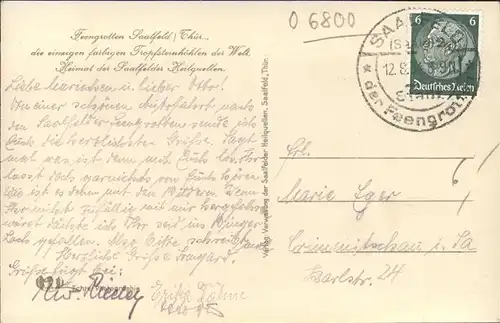 Feengrotten Saalfeld/Thür.,
die einzigen farbigen Tropfsteinhöhlen der Welt.
Heimat der Saalfelder Heilquellen.
O 6800
Liebe Mariechen u. lieber Otto!
Von einer schönen fahrt nach
den Saalfelder Feengrotten sende ich
Euch die herzlichsten Grüße. Sagt
mal was ist denn mit Euch los. Ihr
lasst doch garnichts von Euch hören.
ist es denn mit den
Ihr nicht zufällig mit mir hergefahren
wäret dächte ich Ihr seid ins
Loch gefallen. Also bitte schreibt
Herzliche Grüße Margar.
Grüße fügt bei:
Verlag: Verwaltung der Saalfelder Heilquellen, Saalfeld, Thür.
Echte Photographie
SAALFELD
(SAALE)
12.8.
STADT
der Feengrotten
6 6
Deutsches Reich
Frl.
Marie Eger
Crimmitschau i. Sa
Karlstr. 24